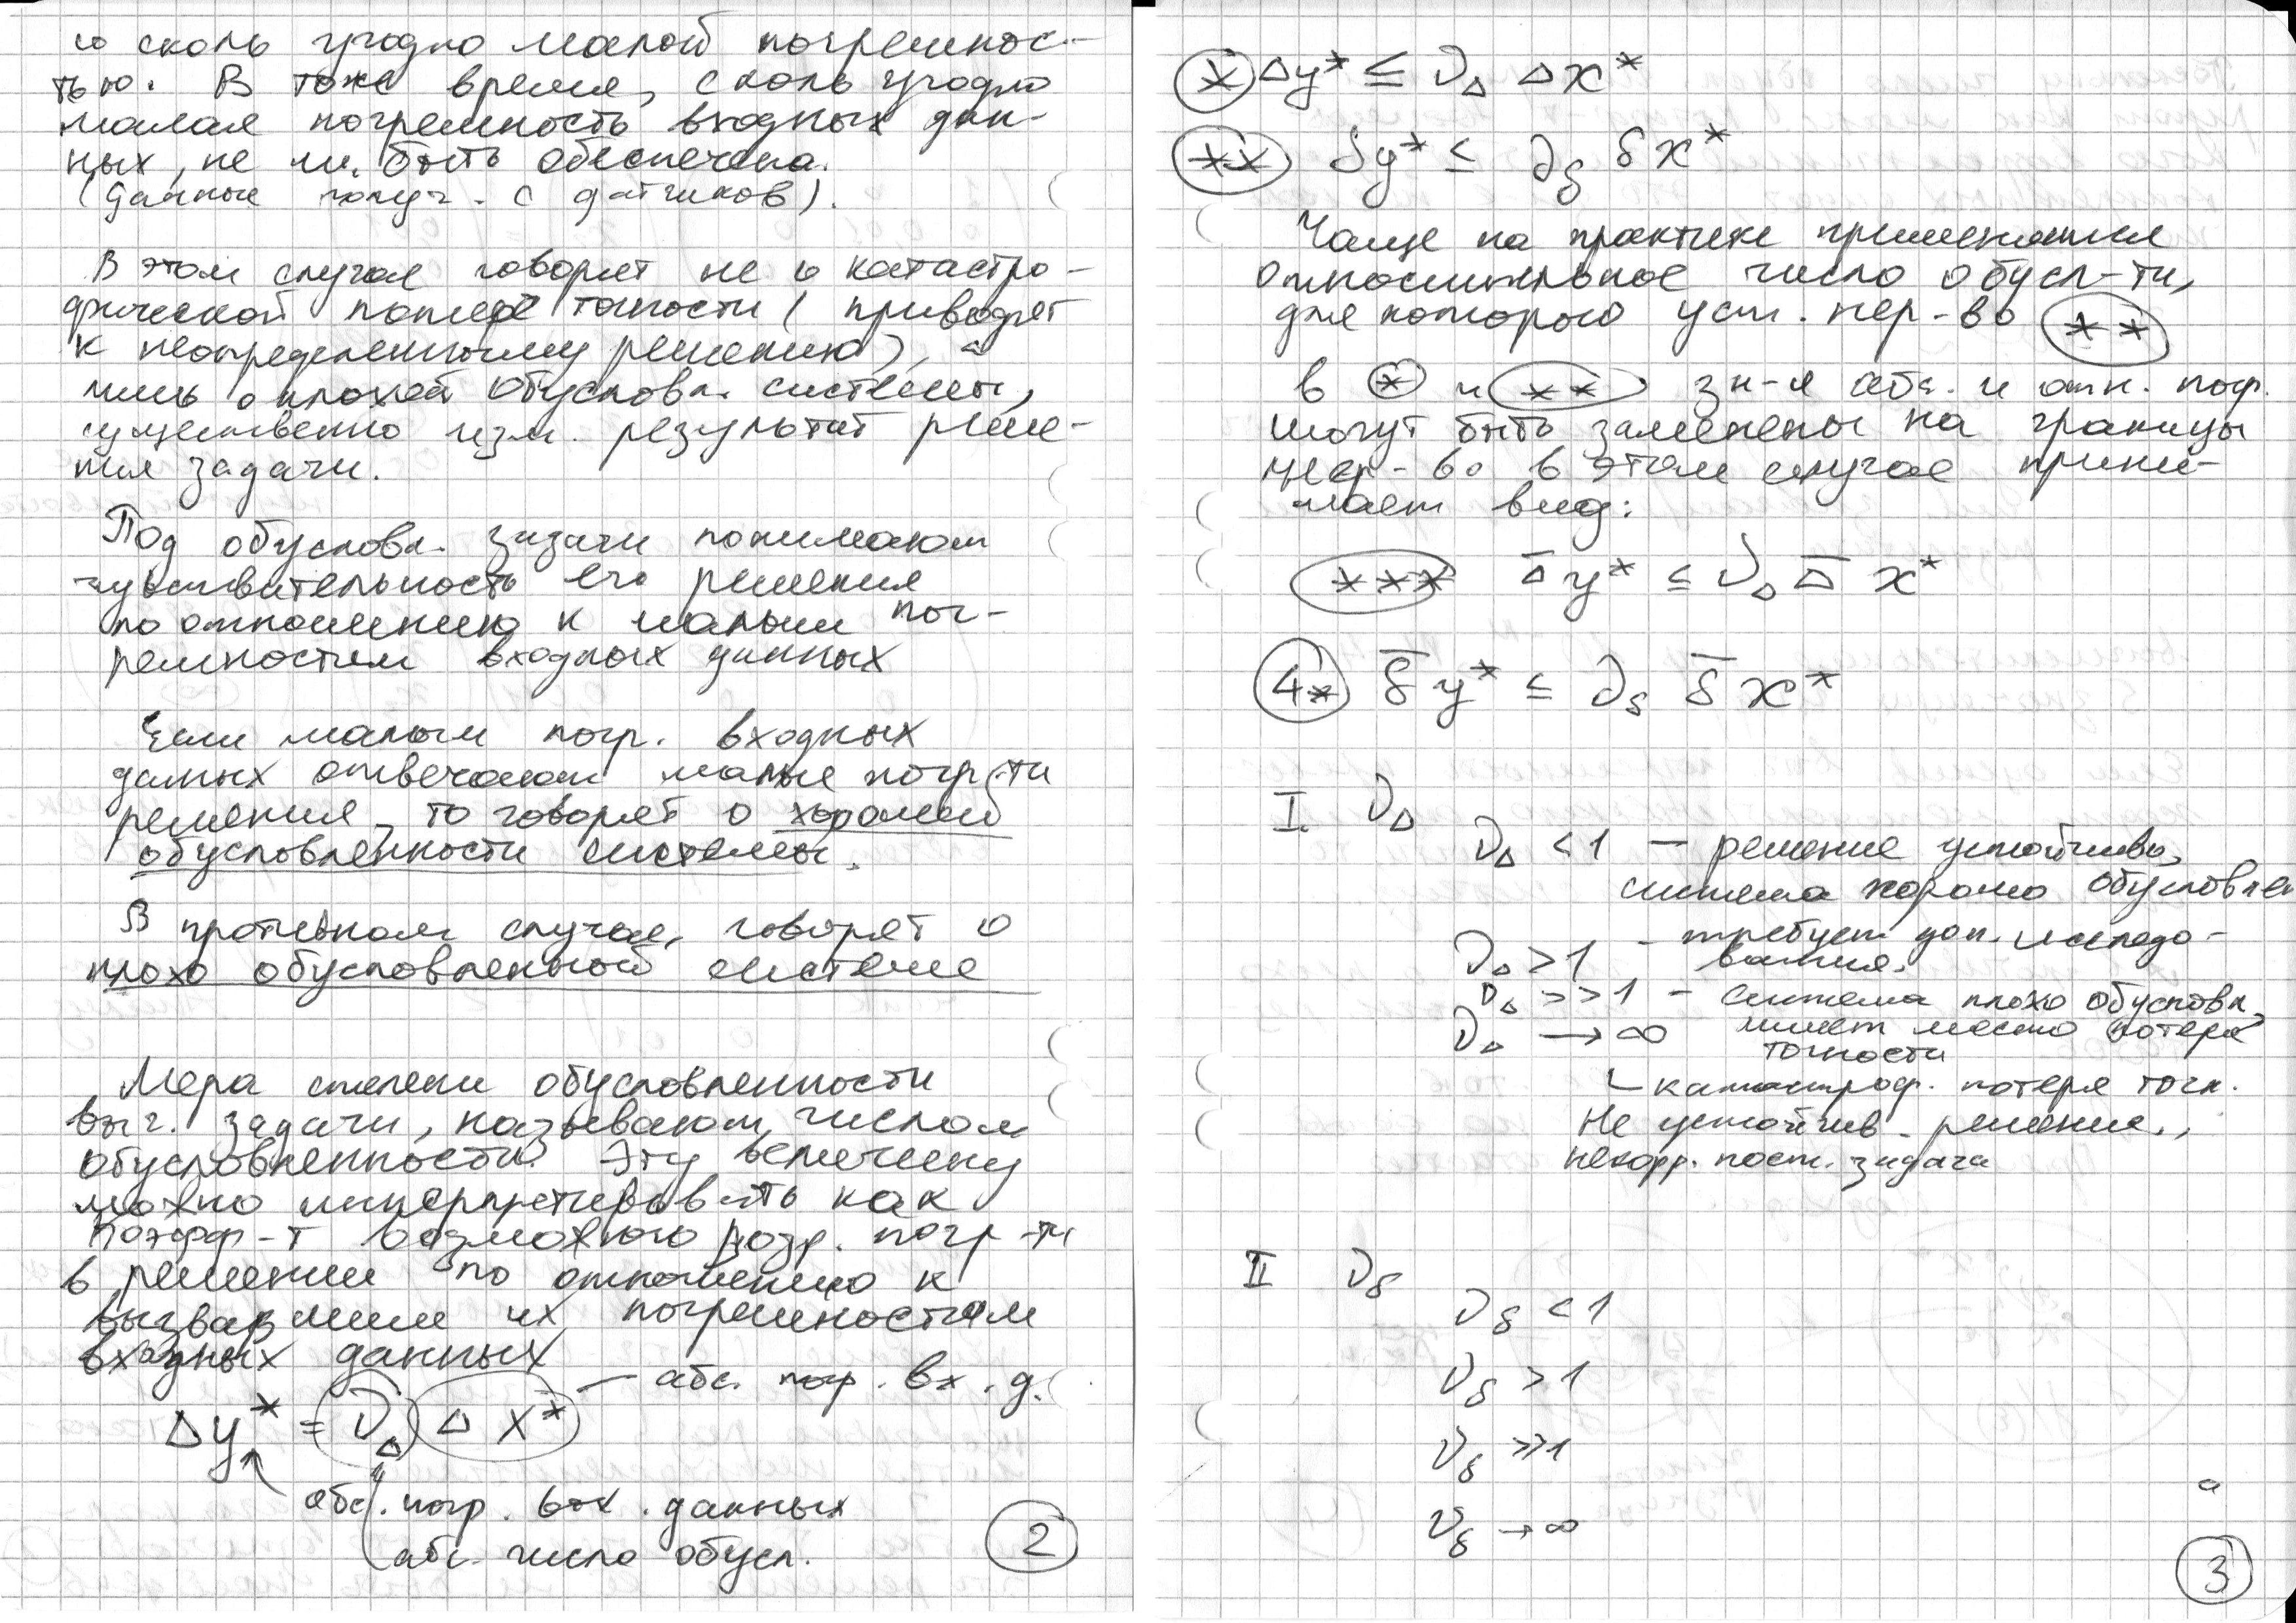 со сколь угодно малой погрешнос-
тью. В тоже время, сколь угодно
малая погрешность входных дан-
ных, не м. быть обеспечена.
(Данные получ. с датчиков).
В этом случае говорят не о катастро-
фической потере точности (приводят
к неопределенному решению), а
лишь о плохой обусловл. системы,
существенно изм. результат реше-
ния задачи.
Под обусловл. задачи понимают
чувствительность его решения
по отношению к малым пог-
решностям входных данных
Если малым погр. входных
данных отвечают малые погр-ти
решения, то говорят о хорошей
обусловленности системы.
В противном случае, говорят о
плохо обусловленной системе
Мера степени обусловленности
выч. задачи, называют числом
обусловленности. Эту величину
можно интерпретировать как
коэфф-т возможного возр. погр-ти
в решении по отношению к
вызвавшим их погрешностям
входных данных
— абс. погр. вх. д.
Δy* = ν_Δ Δ x*
абс. погр. вых. данных
абс. число обусл.
2
* Δy* ≤ ν_Δ Δx*
** δy* ≤ ν_δ δx*
Чаще на практике применяется
относительное число обусл-ти,
для которого уст. нер-во **
в * и ** зн-я абс. и отн. погр.
могут быть заменены на границы
нер-во в этом случае прини-
мает вид:
*** Δ̅ y* ≤ ν_Δ Δ̅ x*
4* δ̅ y* ≤ ν_δ δ̅ x*
I. ν_Δ
ν_Δ < 1 — решение устойчиво,
система хорошо обусловлен
ν_Δ > 1 - требует доп. исследо-
вания.
ν_Δ >> 1 - система плохо обусловл,
ν_Δ → ∞ имеет место потеря
точности
катастроф. потеря точн.
Не устойчив. решение.,
некорр. пост. задача
II ν_δ
ν_δ < 1
ν_δ > 1
ν_δ >> 1
ν_δ → ∞
3